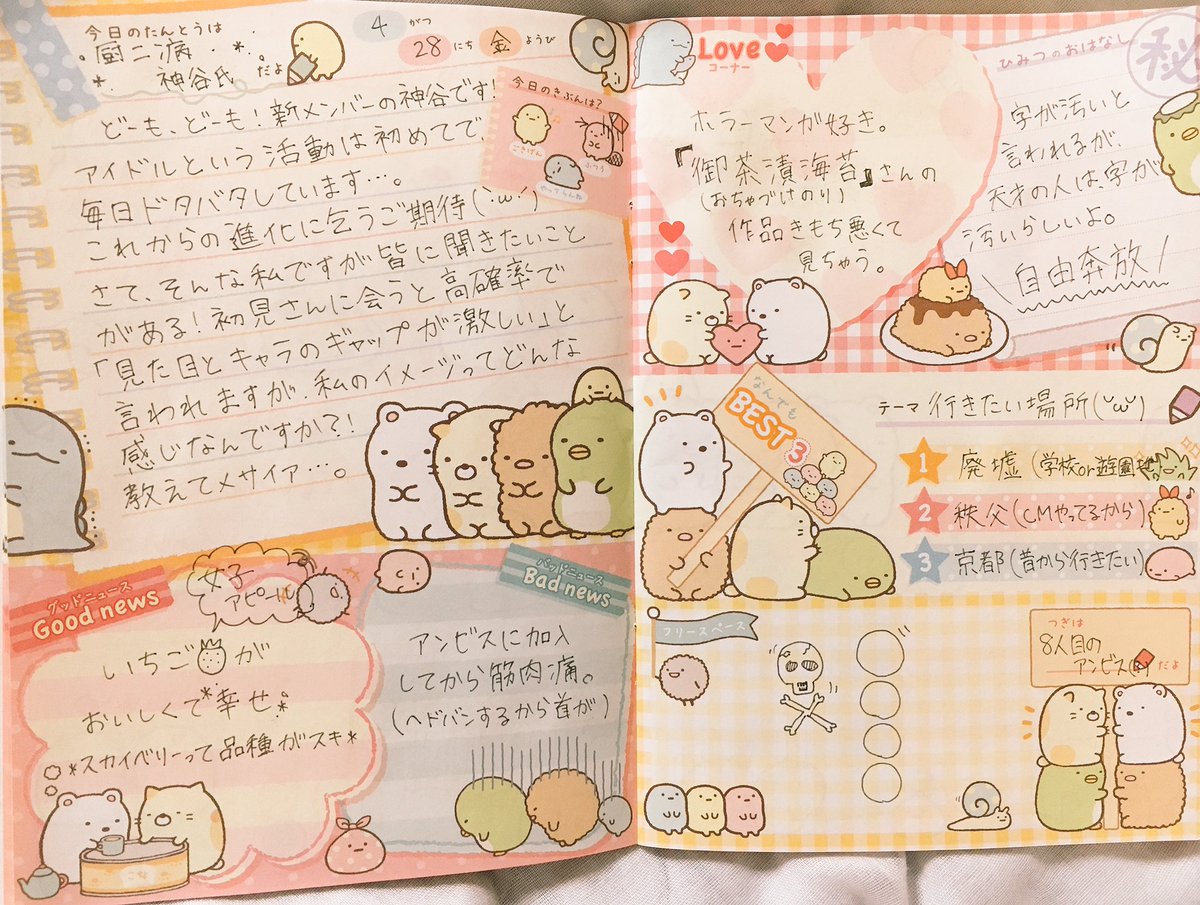 今日のたんとうは
厨二病
神谷氏だよ
4がつ
28にち 金ようび
どーも、どーも！新メンバーの神谷です！
アイドルという活動は初めてで、
毎日ドタバタしています…。
これからの進化に乞うご期待(`･ω･´)
さて、そんな私ですが皆に聞きたいこと
がある！初見さんに会うと高確率で
「見た目とキャラのギャップが激しい」と
言われますが、私のイメージってどんな
感じなんですか？！
教えてメサイア…。
今日のきぶんは？
ごきげん
ふつう
やってらんね
グッドニュース
Good news
女子
アピール
いちごが
おいしくて*幸せ。
*スカイベリーって品種がスキ*
バッドニュース
Bad news
アンビスに加入
してから筋肉痛。
(ヘドバンするから首が)
Love
コーナー
ホラーマンが好き。
『御茶漬海苔』さんの
(おちゃづけのり)
作品きもち悪くて
見ちゃう。
ひみつのおはなし
秘
字が汚いと
言われるが、
天才の人は、字が
汚いらしいよ。
\自由奔放/
なんでも
BEST3
テーマ 行きたい場所(˘ω˘)
1 廃墟(学校or遊園地)
2 秩父(CMやってるから)
3 京都(昔から行きたい)
フリースペース
つぎは
8人目の
アンビスだよ